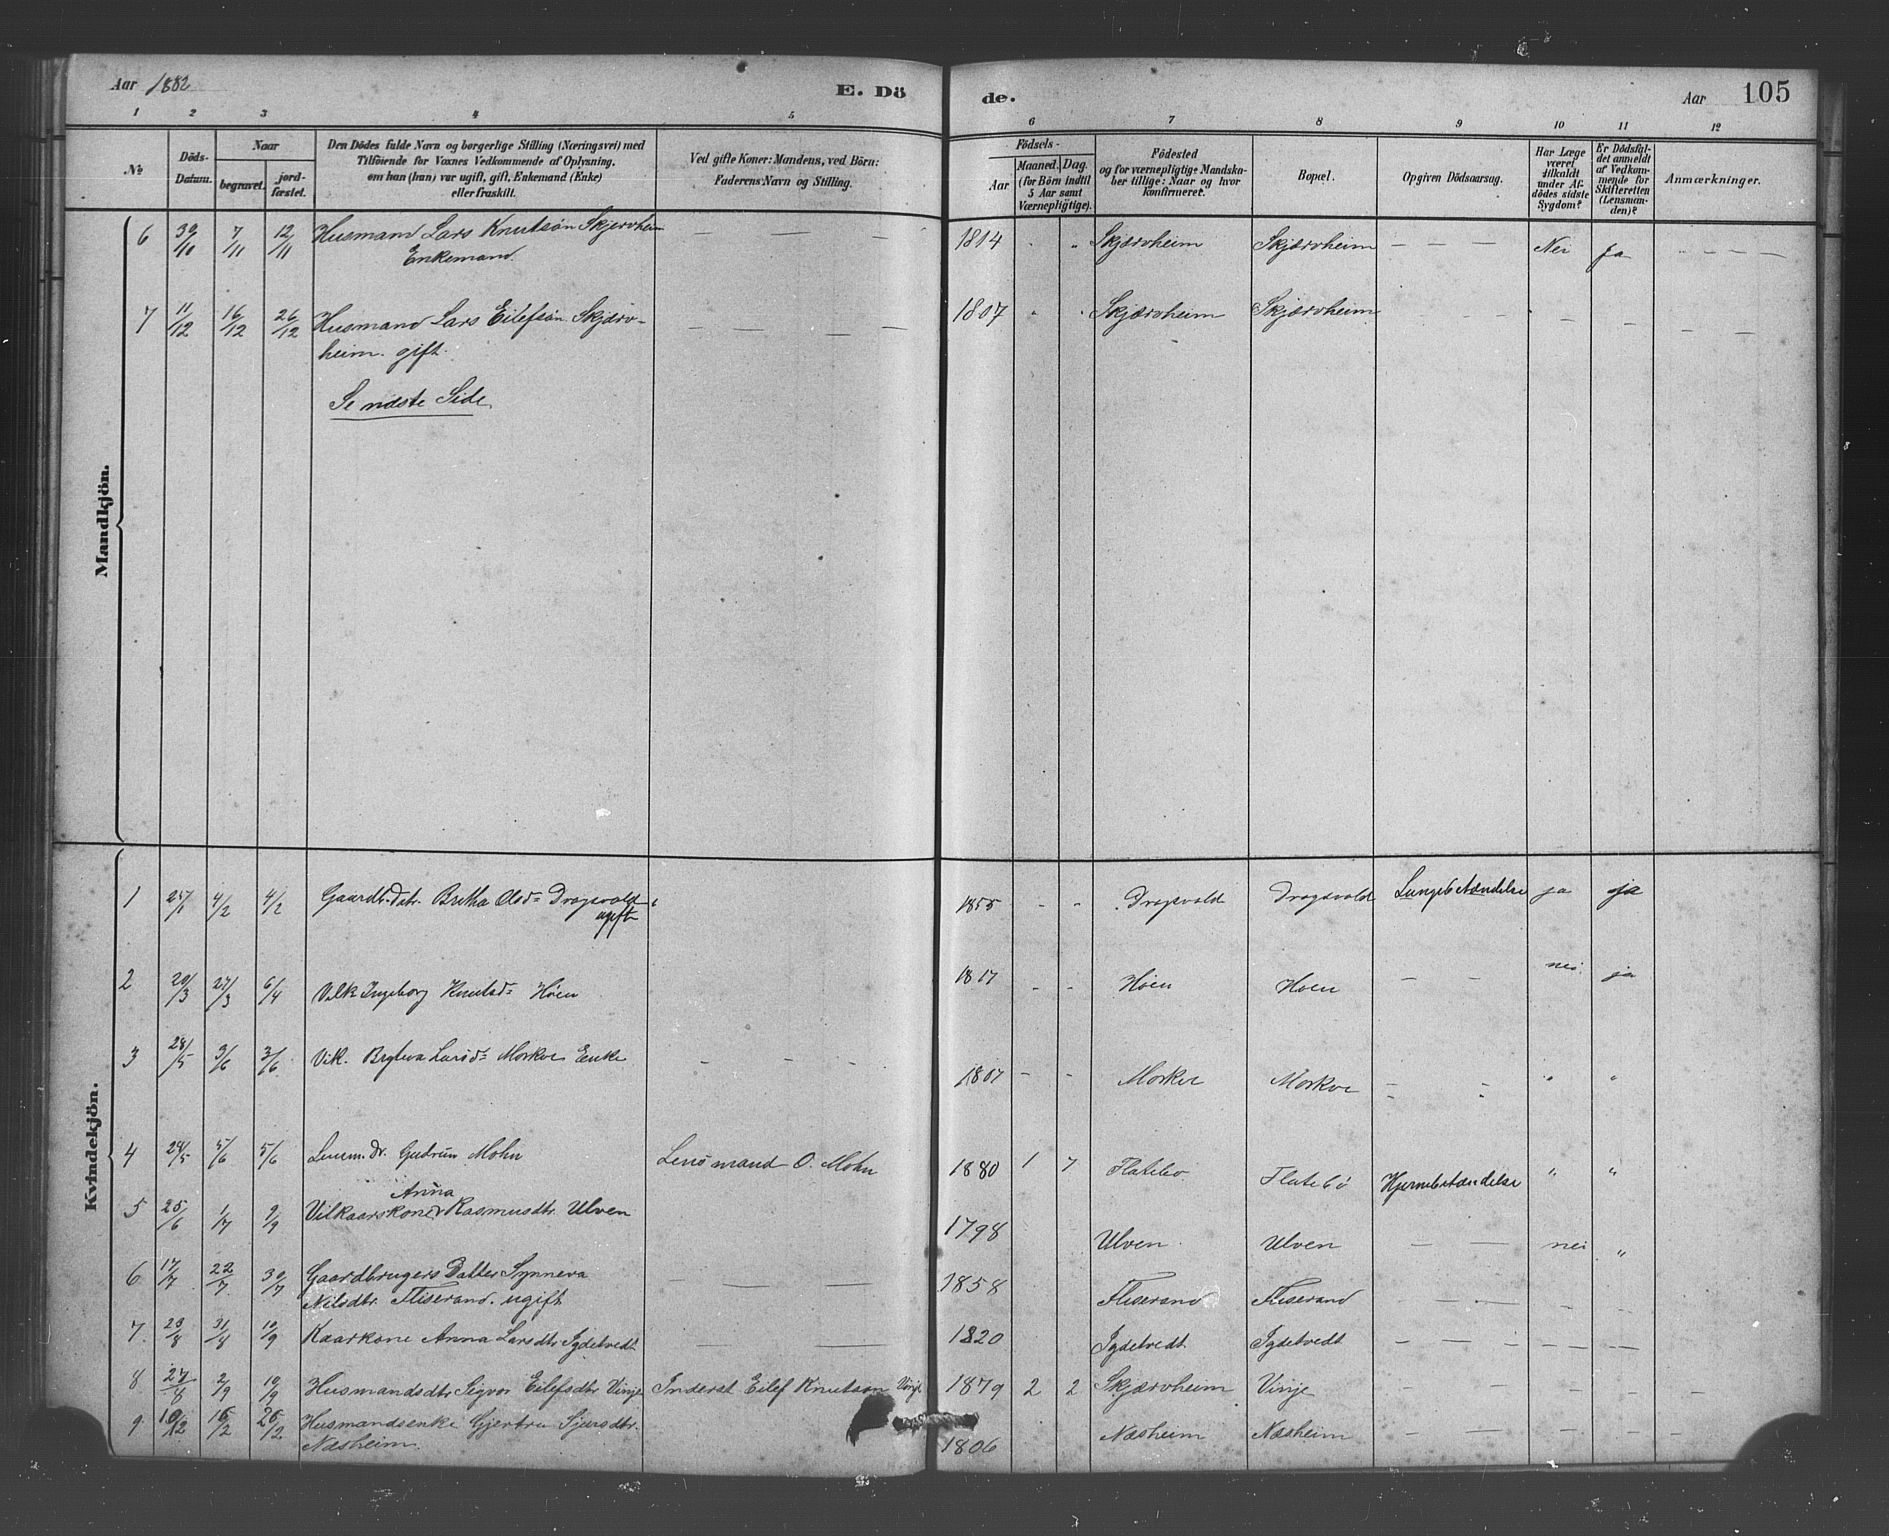 Aar 1882
E. Dö
de.
Aar
105
1 2 3 4 5 6 7 8 9 10 11 12
№
Döds-
Datum.
Naar
begravet.
jord-
fæstet.
Den Dödes fulde Navn og borgerlige Stilling (Næringsvei) med
Tilföiende for Voxnes Vedkommende af Oplysning,
om han (hun) var ugift, gift, Enkemand (Enke)
eller fraskilt.
Ved gifte Koner: Mandens, ved Börn:
Faderens Navn og Stilling.
Födsels-
Aar
Maaned.
Dag.
(for Börn indtil
5 Aar samt
Værnepligtige).
Födested
og for værnepligtige Mandska-
ber tillige: Naar og hvor
konfirmeret.
Bopæl.
Opgiven Dödsaarsag.
Har Læge
været
tilkaldt
under Af-
dödes sidste
Sygdom?
Er Dödsfal-
det anmeldt
af Vedkom-
mende for
Skifteretten
(Lensman-
den)?
Anmærkninger.
Mandkjön.
6 30/10 7/11 12/11 Husmand Lars Knutsön Skjervheim — — — 1814 Skjærvheim Skjærvheim — — — Nei Ja — — — —
Enkemand.
7 11/12 16/12 26/12 Husmand Lars Eilefsön Skjærv- — — — — 1807 Skjærvheim Skjærvheim — — — — — —
heim. gift.
Se næste Side.
Kvindekjön.
1 25/1 4/2 4/2 Gaardb. Datr. Britha Olsd= Dragsvold 1855 - " Dragsvold Dragsvold Lungebetændelse ja ja
ugift
2 20/3 27/3 6/4 Vilk Ingeborg Knutsd= Höen 1817 - - Höen Höen — — nei. ja
3 28/5 3/6 3/6 Vik. Bryteva Larsd= Morkve Enke - - - 1807 - - Morkve Morkve - - " "
4 29/5 5/6 5/6 Lensm. Dr. Gudrun Mohn Lensmand O. Mohn 1880 1 7 Flatebö Flatebö Hjernebetændelse " "
Anna
5 25/6 1/7 9/9 Vilkaarskone Rasmusdtr. Ulven 1798 Ulven Ulven — — nei "
6 17/7 22/7 30/7 Gaardbrugers Datter Synneva — — — 1858 Fliserand Fliserand — — — —
Nilsdtr. Fliserand. ugift
7 23/8 31/8 10/9 Kaarkone Anna Larsdtr Sydetvedt — — 1820 Sydetvedt Sydetvedt — — — — —
8 27/8 2/9 10/9 Husmandsdtr Sigvor Eilefsdtr Vinje Inderst Eilef Knutson Vinje 1879 2 2 Skjærvheim Vinje — — — — — —
9 10/12 16/2 26/2 Husmandsenke Gjertru Sjursdtr. 1806 Næsheim Næsheim — — — — — —
Næsheim.